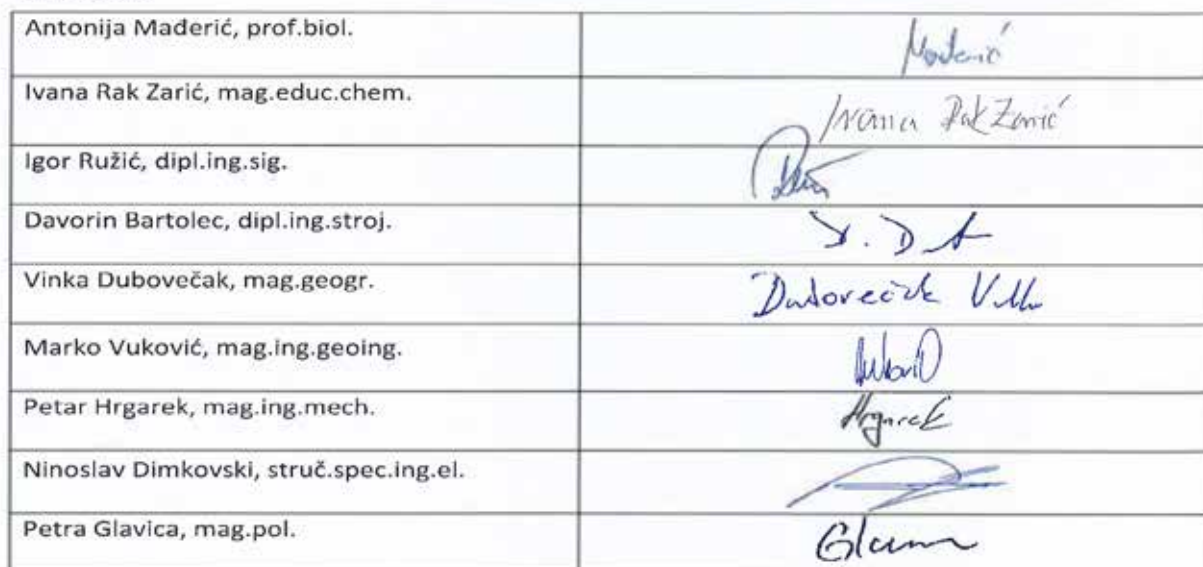 Antonija Mađerić, prof.biol.
Mađerić
Ivana Rak Zarić, mag.educ.chem.
Ivana Rak Zarić
Igor Ružić, dipl.ing.sig.
Davorin Bartolec, dipl.ing.stroj.
Vinka Dubovečak, mag.geogr.
Dubovečak
Marko Vuković, mag.ing.geoing.
Petar Hrgarek, mag.ing.mech.
Hrgarek
Ninoslav Dimkovski, struč.spec.ing.el.
Petra Glavica, mag.pol.